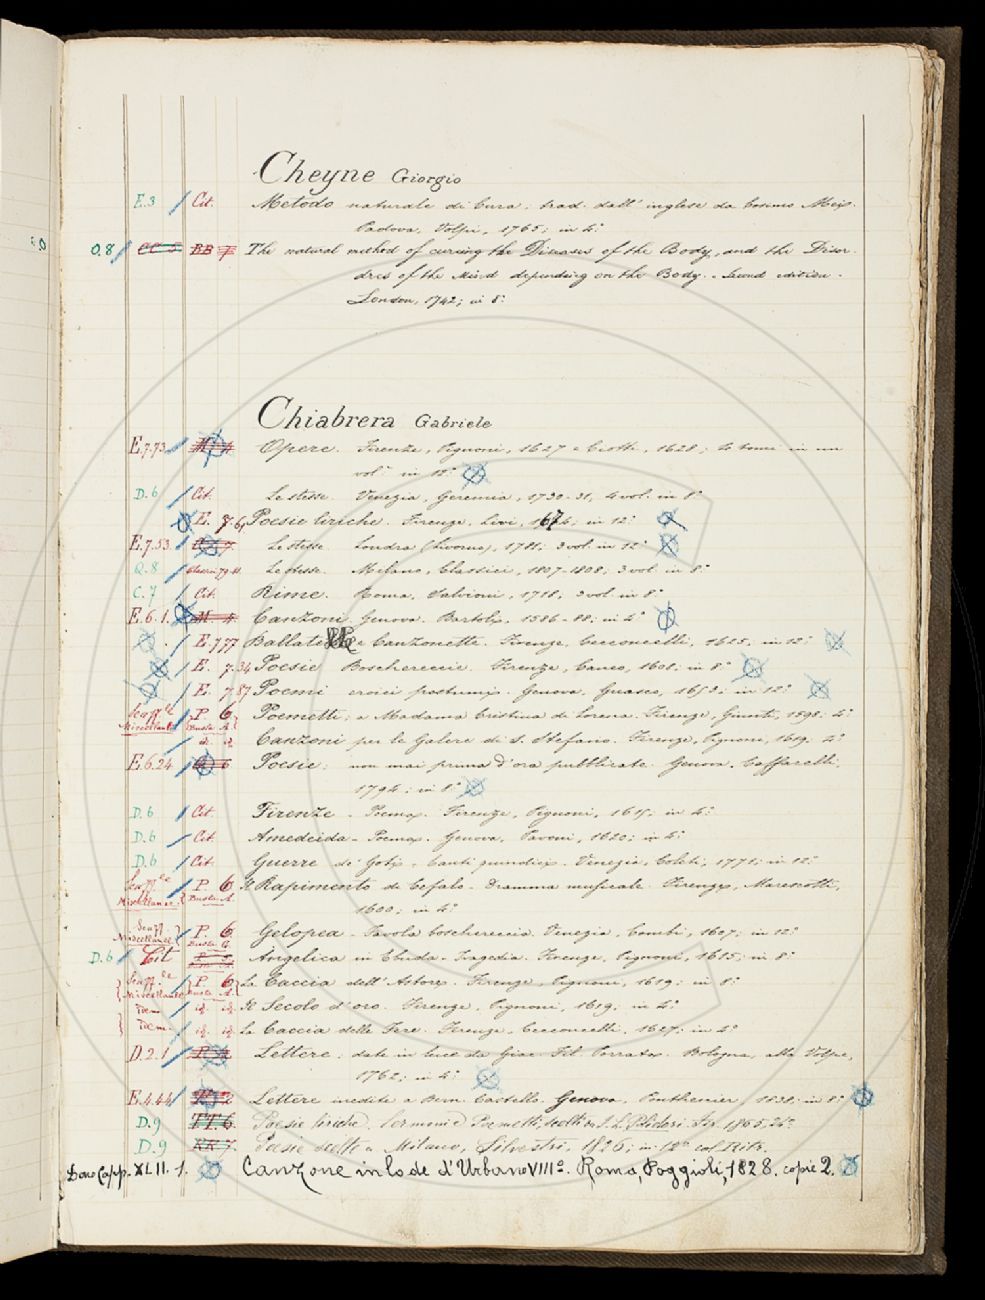 Cheyne Giorgio
E.3 / Cit. Metodo naturale di Cura: trad. dall' inglese da Cosimo Mei.
Padova, Volpi, 1765; in 4°
O.8 / BB 7 The natural method of curing the Diseases of the Body, and the Disor-
ders of the Mind depending on the Body. Second edition.
London, 1742; in 8°
Chiabrera Gabriele
E.7.73 Opere. Firenze, Pignoni, 1627 e Ciotti, 1628; 4 tomi in un
vol. in 12°
D.6 / Cit. Le stesse. Venezia, Geremia, 1730-31, 4 vol. in 8°
E. 7.61 Poesie liriche. Firenze, Livi, 1674; in 12°
E.7.53 Le stesse. Londra (Livorno), 1781; 3 vol. in 12°
Q.8 / Classici 79-81 Le stesse. Milano, Classici, 1807-1808; 3 vol. in 8°
C.7 / Cit. Rime. Roma, Salvioni, 1718, 3 vol. in 8°
E.6.1. Canzoni. Genova, Bartoli, 1586-88; in 4°
E.7.77 Ballate e Canzonette. Firenze, Cecconcelli, 1625, in 12°
E. 7.34 Poesie Boscherecce. Firenze, 1608; in 8°
E. 7.87 Poemi eroici postumi. Genova, Guasco, 1653; in 12°
Scaff.le Miscellanee P. 6 Busta A. Poemetti; a Madama Cristina di Lorena. Firenze, Giunti, 1598; 4°
id. id. Canzoni per le Galere di S. Stefano. Firenze, Pignoni, 1619. 4°
E.6.24 Poesie; non mai prima d'ora pubblicate. Genova, Caffarelli,
1794; in 8°
D.6 / Cit. Firenze. Poema. Firenze, Pignoni, 1615; in 4°
D.6 / Cit. Amedeida. Poema. Genova, Pavoni, 1620; in 4°
D.6 / Cit. Guerre de' Goti. Canti quindici. Venezia, Coleti, 1771; in 12°
Scaff.le Miscellanee P. 6 Busta A. Il Rapimento di Cefalo. Dramma musicale. Firenze, Marescotti,
1600; in 4°
Scaff. Miscellanee P. 6 Gelopea. Favola boschereccia. Venezia, Combi, 1607; in 12°
D.6 / Cit Angelica in Ebuda. Tragedia. Firenze, Pignoni, 1615; in 8°
Scaff.le Miscellanee P. 6 Busta A. La Caccia dell' Astore. Firenze, Pignoni, 1619; in 8°
Idem id. id. Il Secolo d'oro. Firenze, Pignoni, 1619; in 4°
Idem id. id. La Caccia delle Fere. Firenze, Cecconcelli, 1627; in 4°
D.2.1 Lettere; date in luce da Giac. Fil. Porrata. Bologna, alla Volpe,
1762; in 4°
E.4.44 Lettere inedite a Bern. Castello. Genova, Ponthenier, 1838; in 8°
D.9 TT.6. Poesie liriche, Sermoni e Poemetti, scelti da F. L. Polidori. Fir. 1865, 24°
D.9 KK 7. Poesie scelte. Milano, Silvestri, 1826; in 12° col Ritr.
Dono Capp. XLII. 1. Canzone in lode d'Urbano VIII°. Roma, Poggioli, 1828. copie 2.